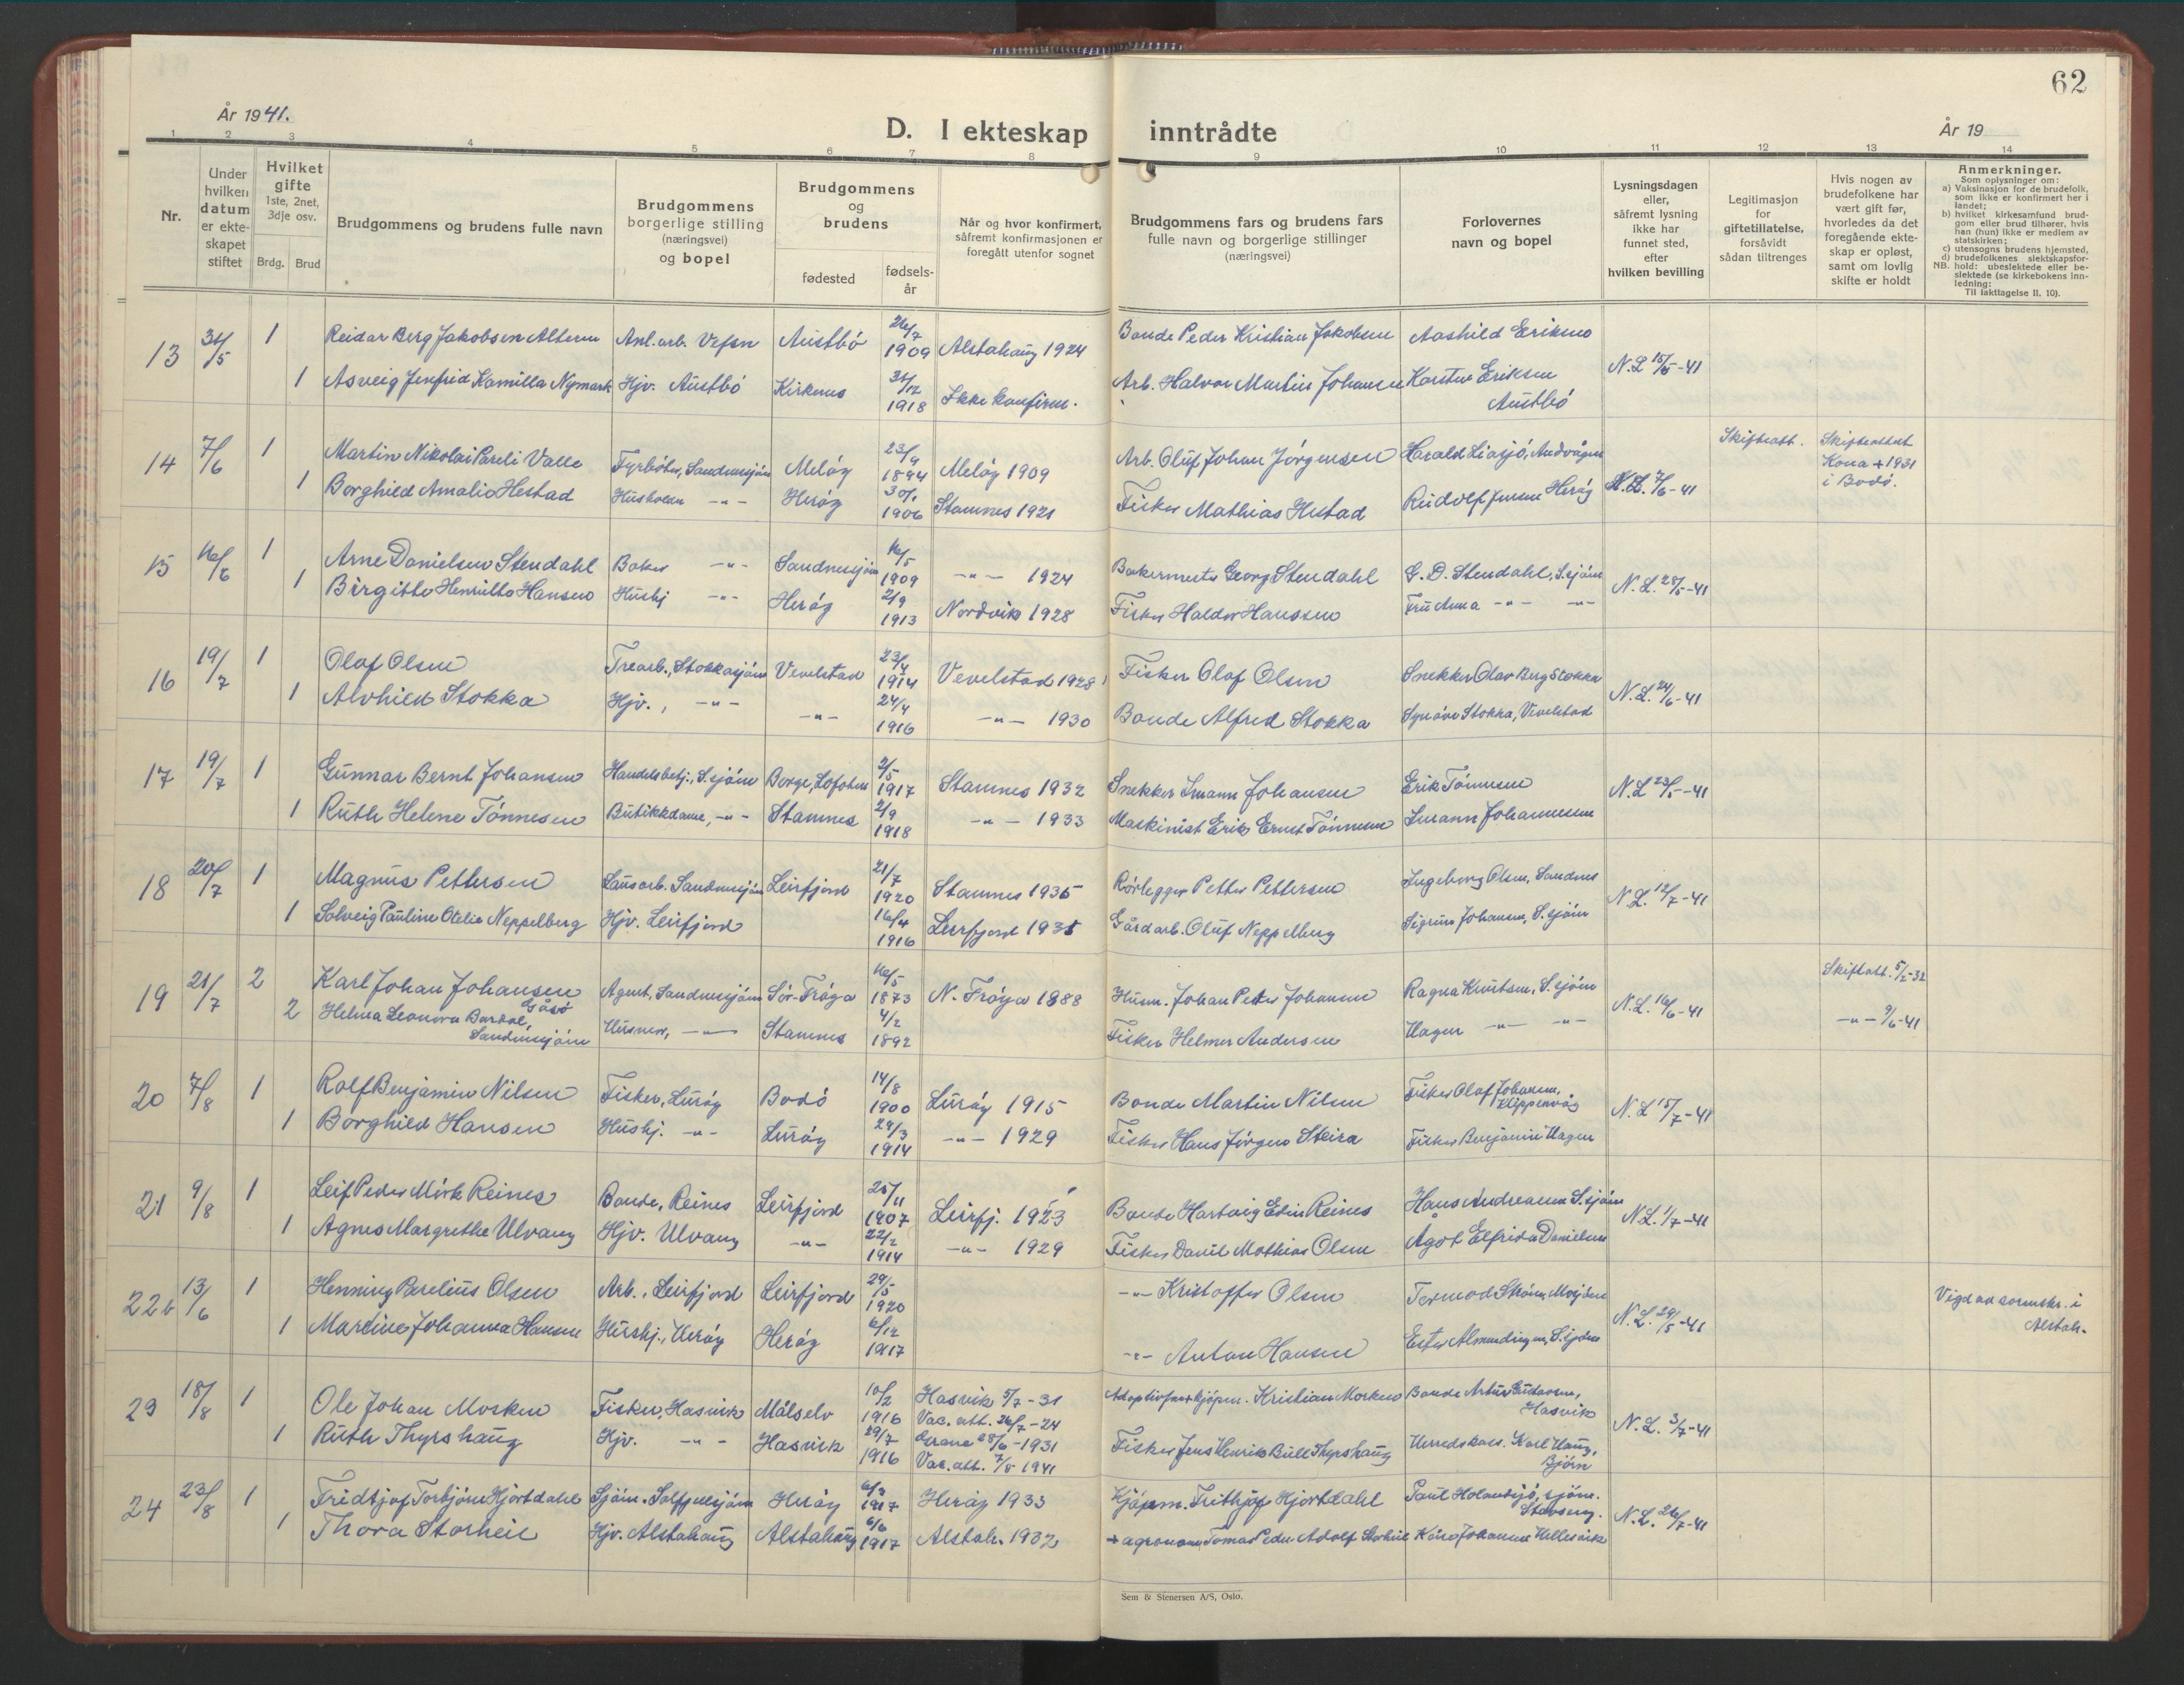 62
År 1941.
D. I ekteskap inntrådte
År 19
1 2 3 4 5 6 7 8 9 10 11 12 13 14
Nr.
Under hvilken datum er ekteskapet stiftet
Hvilket gifte 1ste, 2net, 3dje osv.
Brdg. Brud
Brudgommens og brudens fulle navn
Brudgommens borgerlige stilling (næringsvei) og bopel
Brudgommens og brudens
fødested
fødselsår
Når og hvor konfirmert, såfremt konfirmasjonen er foregått utenfor sognet
Brudgommens fars og brudens fars fulle navn og borgerlige stillinger (næringsvei)
Forlovernes navn og bopel
Lysningsdagen eller, såfremt lysning ikke har funnet sted, efter hvilken bevilling
Legitimasjon for giftetillatelse, forsåvidt sådan tiltrenges
Hvis nogen av brudefolkene har vært gift før, hvorledes da det foregående ekteskap er opløst, samt om lovlig skifte er holdt
Anmerkninger.
Som oplysninger om:
a) Vaksinasjon for de brudefolk, som ikke er konfirmert her i landet;
b) hvilket kirkesamfund brudgom eller brud tilhører, hvis han (hun) ikke er medlem av statskirken;
c) utensogns brudens hjemsted,
d) brudefolkenes slektskapsforhold: ubeslektede eller beslektede (se kirkebokens innledning:
NB.
Til iakttagelse II. 10).
13 31/5 1 Reidar Berg Jakobsen Alteren Anl.arb. Vefsn Austbø 26/7 1909 Alstahaug 1924 Bonde Peder Kristian Jakobsen Aashild Eriksen
1 Asveig Jenfrid Kamilla Nymark Hjv. Austbø Kirkenes 31/12 1918 Ikke konfirm. Arb. Halvor Martin Johansen Karsten Eriksen Austbø N.L. 15/5-41
14 7/6 1 Martin Nikolai Pareli Valle Fyrbøter, Sandnessjøen Meløy 23/9 1894 Meløy 1909 Arb. Oluf Johan Jørgensen Harald Liasjø, Andvågen Skifteatt. Skifteattest Kona + 1931 i Bodø.
1 Borghild Amalie Hestad Husholdn -"- Herøy 30/1 1906 Stamnes 1921 Fisker Mathias Hestad Rudolf Jensen Herøy N.L. 7/6-41
15 16/6 1 Arne Danielsen Stendahl Baker -"- Sandnessjøen 16/5 1909 -"- 1924 Bakermester Georg Stendahl G. D. Stendahl, S.sjøen
1 Birgitte Henriette Hansen Hushj -"- Herøy 2/9 1913 Nordvik 1928 Fisker Haldor Hanssen Fru Anna -"- -"- N.L. 28/5-41
16 19/7 1 Olaf Olsen Trearb., Stokkasjøen Vevelstad 23/4 1914 Vevelstad 1928 Fisker Olaf Olsen Snekker Olav Berg Stokka
1 Alvhild Stokka Hjv., -"- -"- 24/4 1916 -"- 1930 Bonde Alfred Stokka Synøve Stokka, Vevelstad N.L. 24/6-41
17 19/7 1 Gunnar Bernt Johansen Handelsbetj., S.sjøen Borge, Lofoten 2/5 1917 Stamnes 1932 Snekker Johansen Erik Tønnesen
1 Ruth Helene Tønnesen Butikkdame, -"- Stamnes 2/9 1918 -"- 1933 Maskinist Erik Ernst Tønnesen Johannessen N.L. 23/5-41
18 20/7 1 Magnus Pettersen Lausarb. Sandnessjøen Leirfjord 21/7 1920 Stamnes 1935 Rørlegger Petter Pettersen Ingeborg Olsen, Sandnes
1 Solveig Pauline Otelie Neppelberg Hjv. Leirfjord 16/4 1916 Leirfjord 1931 Gårdarb. Oluf Neppelberg Sigrun Johansen, S.sjøen N.L. 12/7-41
19 21/7 2 Karl Johan Johansen Gåsø Agent, Sandnessjøen Sør-Frøya 16/5 1873 N. Frøya 1888 Husm. Johan Peter Johansen Ragna Knutsen, S.sjøen Skifteatt. 5/2-32
2 Helma Leonora Bardal, Sandnessjøen Husmor, -"- Stamnes 4/2 1892 Fisker Helmer Andersen Hagen -"- -"- N.L. 16/6-41 -"- 9/6-41
20 7/8 1 Rolf Benjamin Nilsen Fisker, Lurøy Bodø 14/8 1900 Lurøy 1915 Bonde Martin Nilsen Fisker Olaf Johansen, Klippenvåg
1 Borghild Hansen Hushj. -"- Lurøy 29/3 1914 -"- 1929 Fisker Hans Jørgen Steira Fisker Benjamin Hagen N.L. 15/7-41
21 9/8 1 Leif Peder Mörk Reines Bonde, Reines Leirfjord 25/11 1907 Leirfj. 1923 Bonde Hartvig Edin Reines Hans Andreassen S.sjøen
1 Agnes Margrethe Ulvang Hjv. Ulvang -"- 22/2 1914 -"- 1929 Fisker Daniel Mathias Olsen Ågot Elfrida Danielsen N.L. 1/7-41
22b 13/6 1 Henning Parelius Olsen Arb., Leirfjord Leirfjord 29/5 1920 -"- Kristoffer Olsen Tormod Mosjøen Vigd av sorenskr. i Alstah.
1 Martine Johanna Hansen Hushj., Herøy Herøy 6/12 1917 -"- Anton Hansen Ester Almendingen, S.sjøen N.L. 29/5-41
23 18/8 1 Ole Johan Morken Fisker, Hasvik Målselv 10/2 1916 Hasvik 5/7-31 Vac. att. 26/7-24 Adoptivfar kjøpm. Kristian Morken Bonde Artur Gustavsen, Hasvik
1 Ruth Thyrshaug Hjv. -"- Hasvik 29/7 1916 28/6-1931 Vac. att. 7/8 1941 Fisker Jens Henrik Bull Thyrshaug Herredskass. Karl Haug, Bjørn N.L. 3/7-41
24 23/8 1 Fridtjof Torbjørn Hjortdahl Sjøm. Herøy 6/3 1917 Herøy 1933 Kjøpm. Frithjof Hjortdahl Paul Holandsjø, sjøm. Stavseng.
1 Thora Storheil Hjv. Alstahaug Alstahaug 6/6 1917 Alstah. 1932 + agronom Tomas Peder Adolf Storheil Kåre Johansen Hellesvik N.L. 26/7-41
Sem & Stenersen A/S, Oslo.